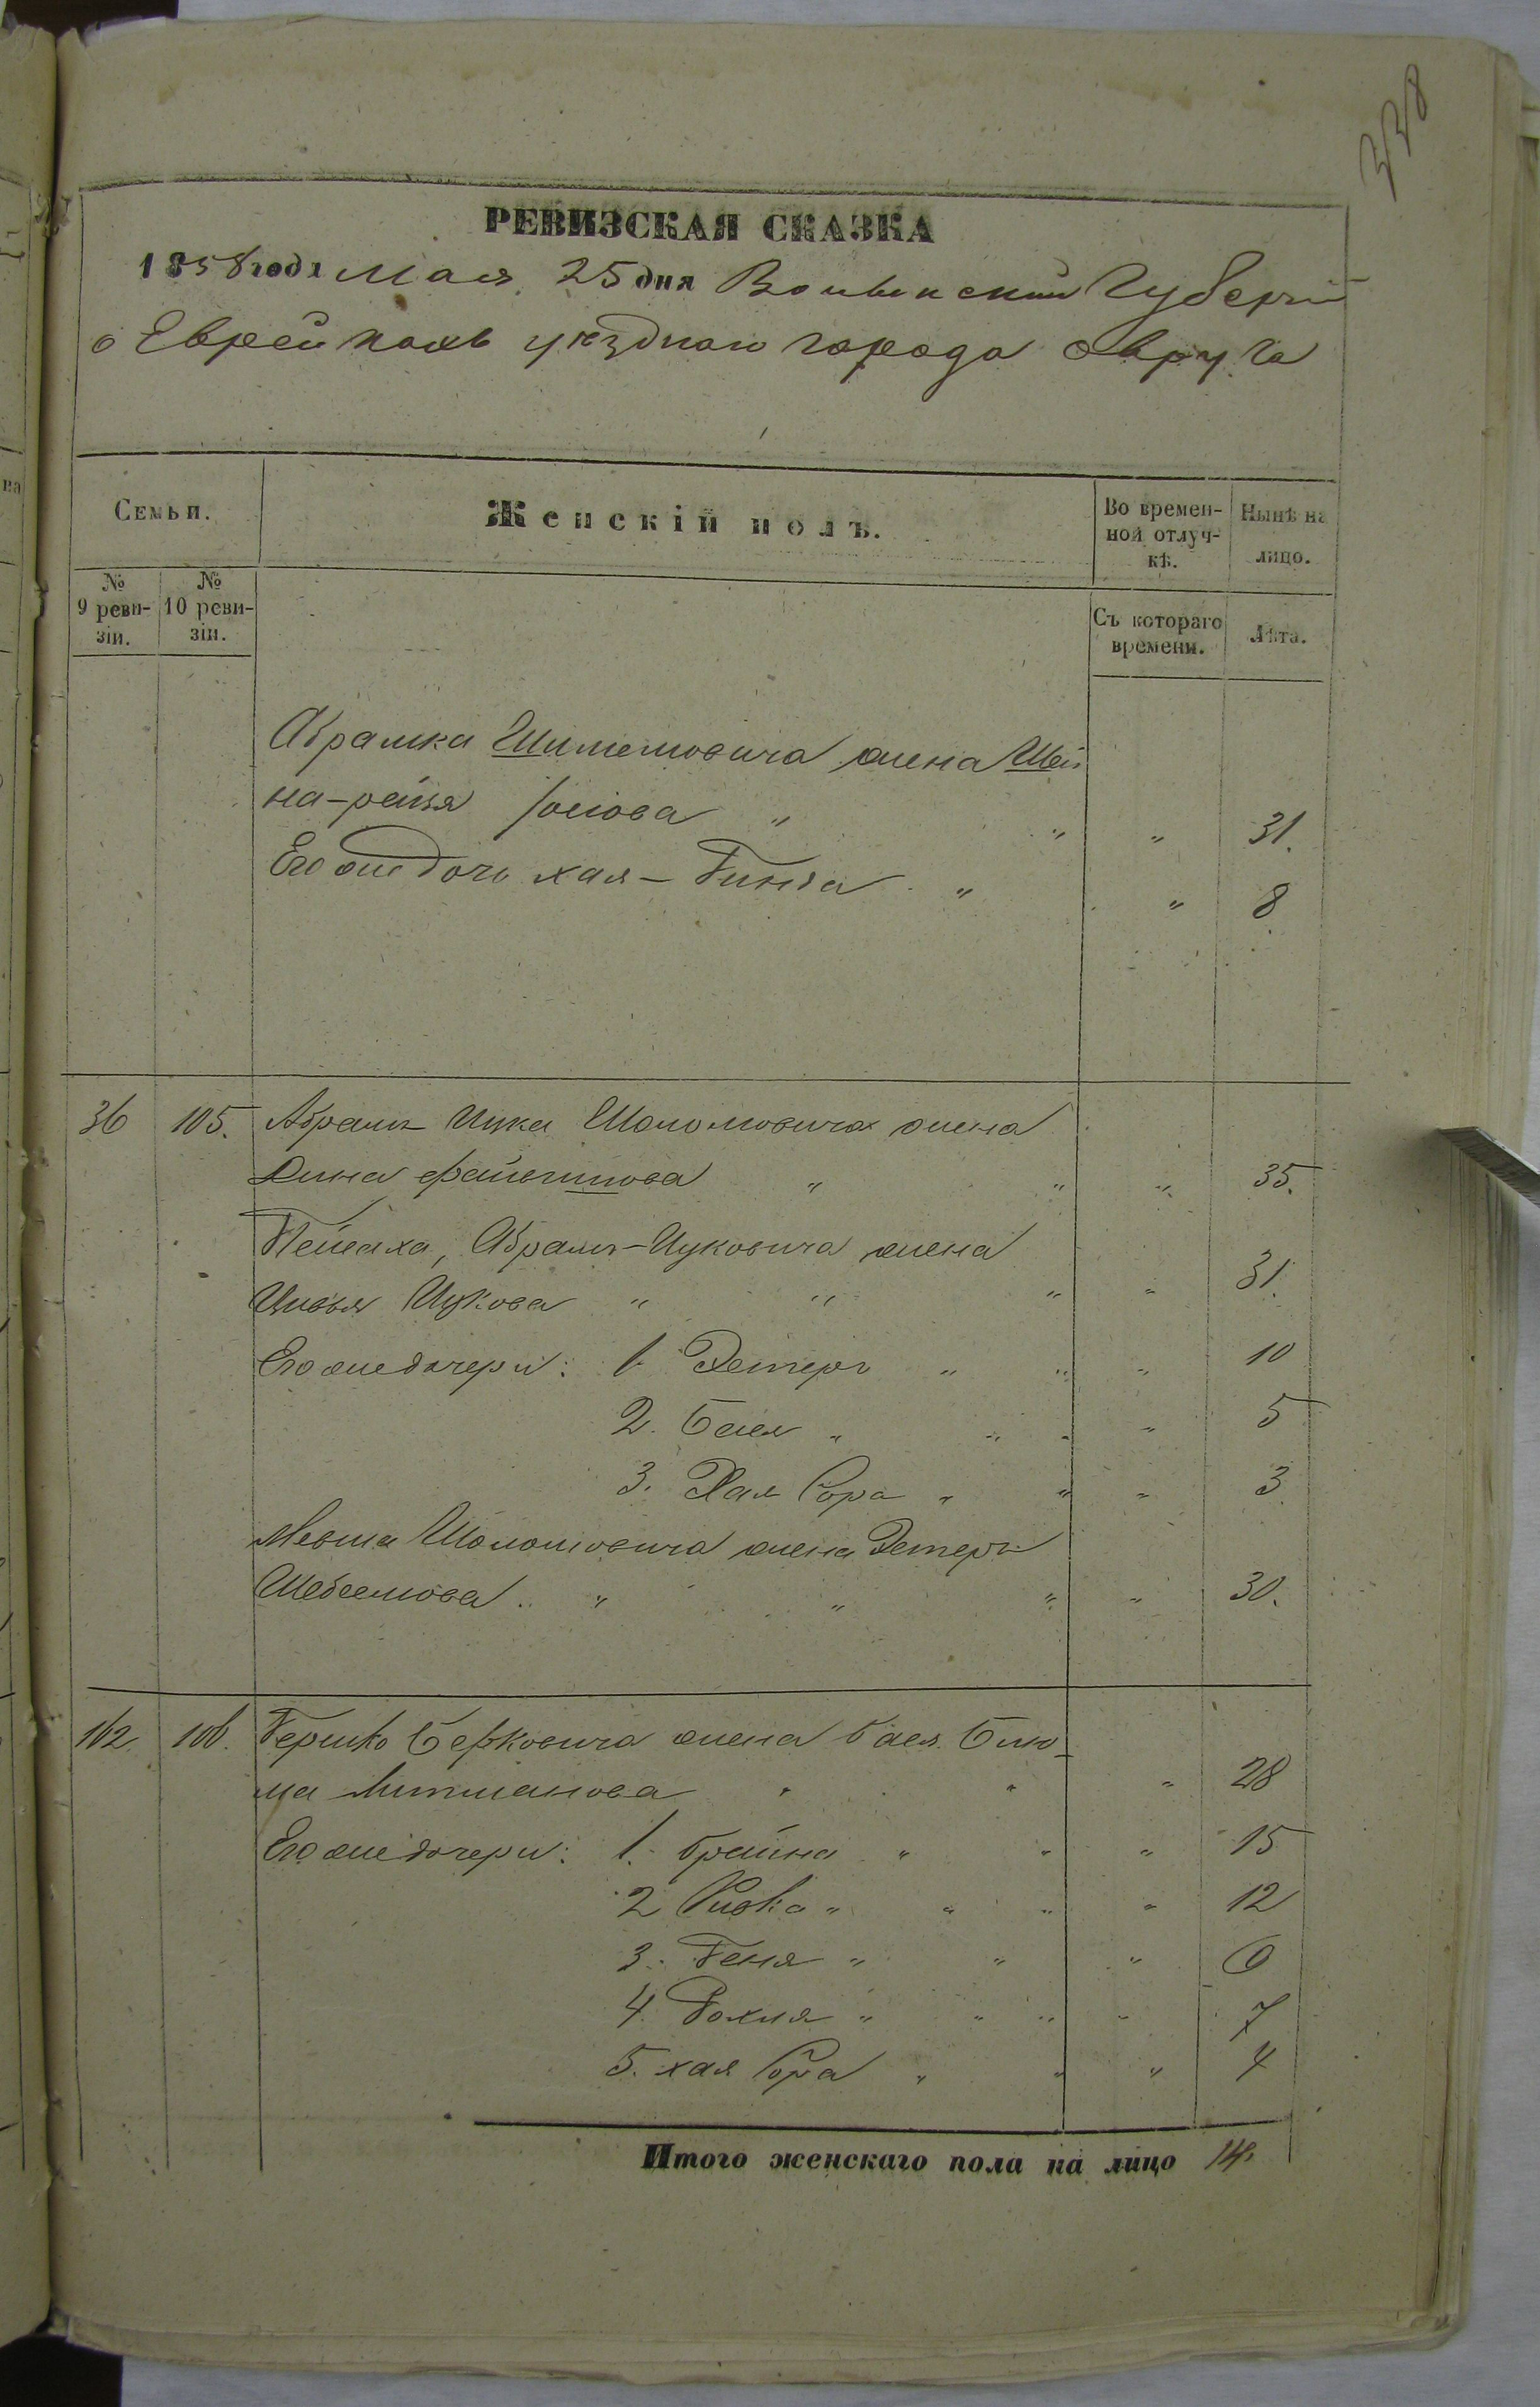 338
РЕВИЗСКАЯ СКАЗКА
1858 года Мая 25 дня Волынской Губерніи
о Еврейкахъ уѣзднаго города Овруча
Семьи.
Женскій полъ.
Во времен-
ной отлуч-
кѣ.
Нынѣ на
лицо.
№
9 реви-
зіи.
№
10 реви-
зіи.
Съ котораго
времени.
Лѣта.
Абрамка Шилемовича жена Шей
на-рейзя " " " 31.
Его же дочь хая-Гинда " " 8
36 105. Абрамъ Ицка Шоломовича жена
Дина файвишова " " " 35.
Пейсаха, Абрамъ-Ицковича жена
Цивья Ицкова " " " " 31.
Его же дочери: 1. Эстеръ " " " 10
2. Бася " " " " 5
3. Хая Сора " " " 3
Мевша Шоломовича жена Эстеръ
" " " " 30.
162. 106. Гершко Берковича жена Бася. Блю-
ма Литманова " " " 28
Его же дочери: 1. Брайна " " " 15
2 Ривка " " " " 12
3. Геня " " " 6
4 Рохля " " " " 7
5. хая Сора " " " 4
Итого женскаго пола на лицо 14.